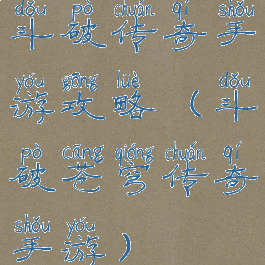 dǒu pò chuán qí shǒu
斗破传奇手
yóu gōng lüè dǒu
游攻略（斗
pò cāng qióng chuán qí
破苍穹传奇
shǒu yóu
手游）